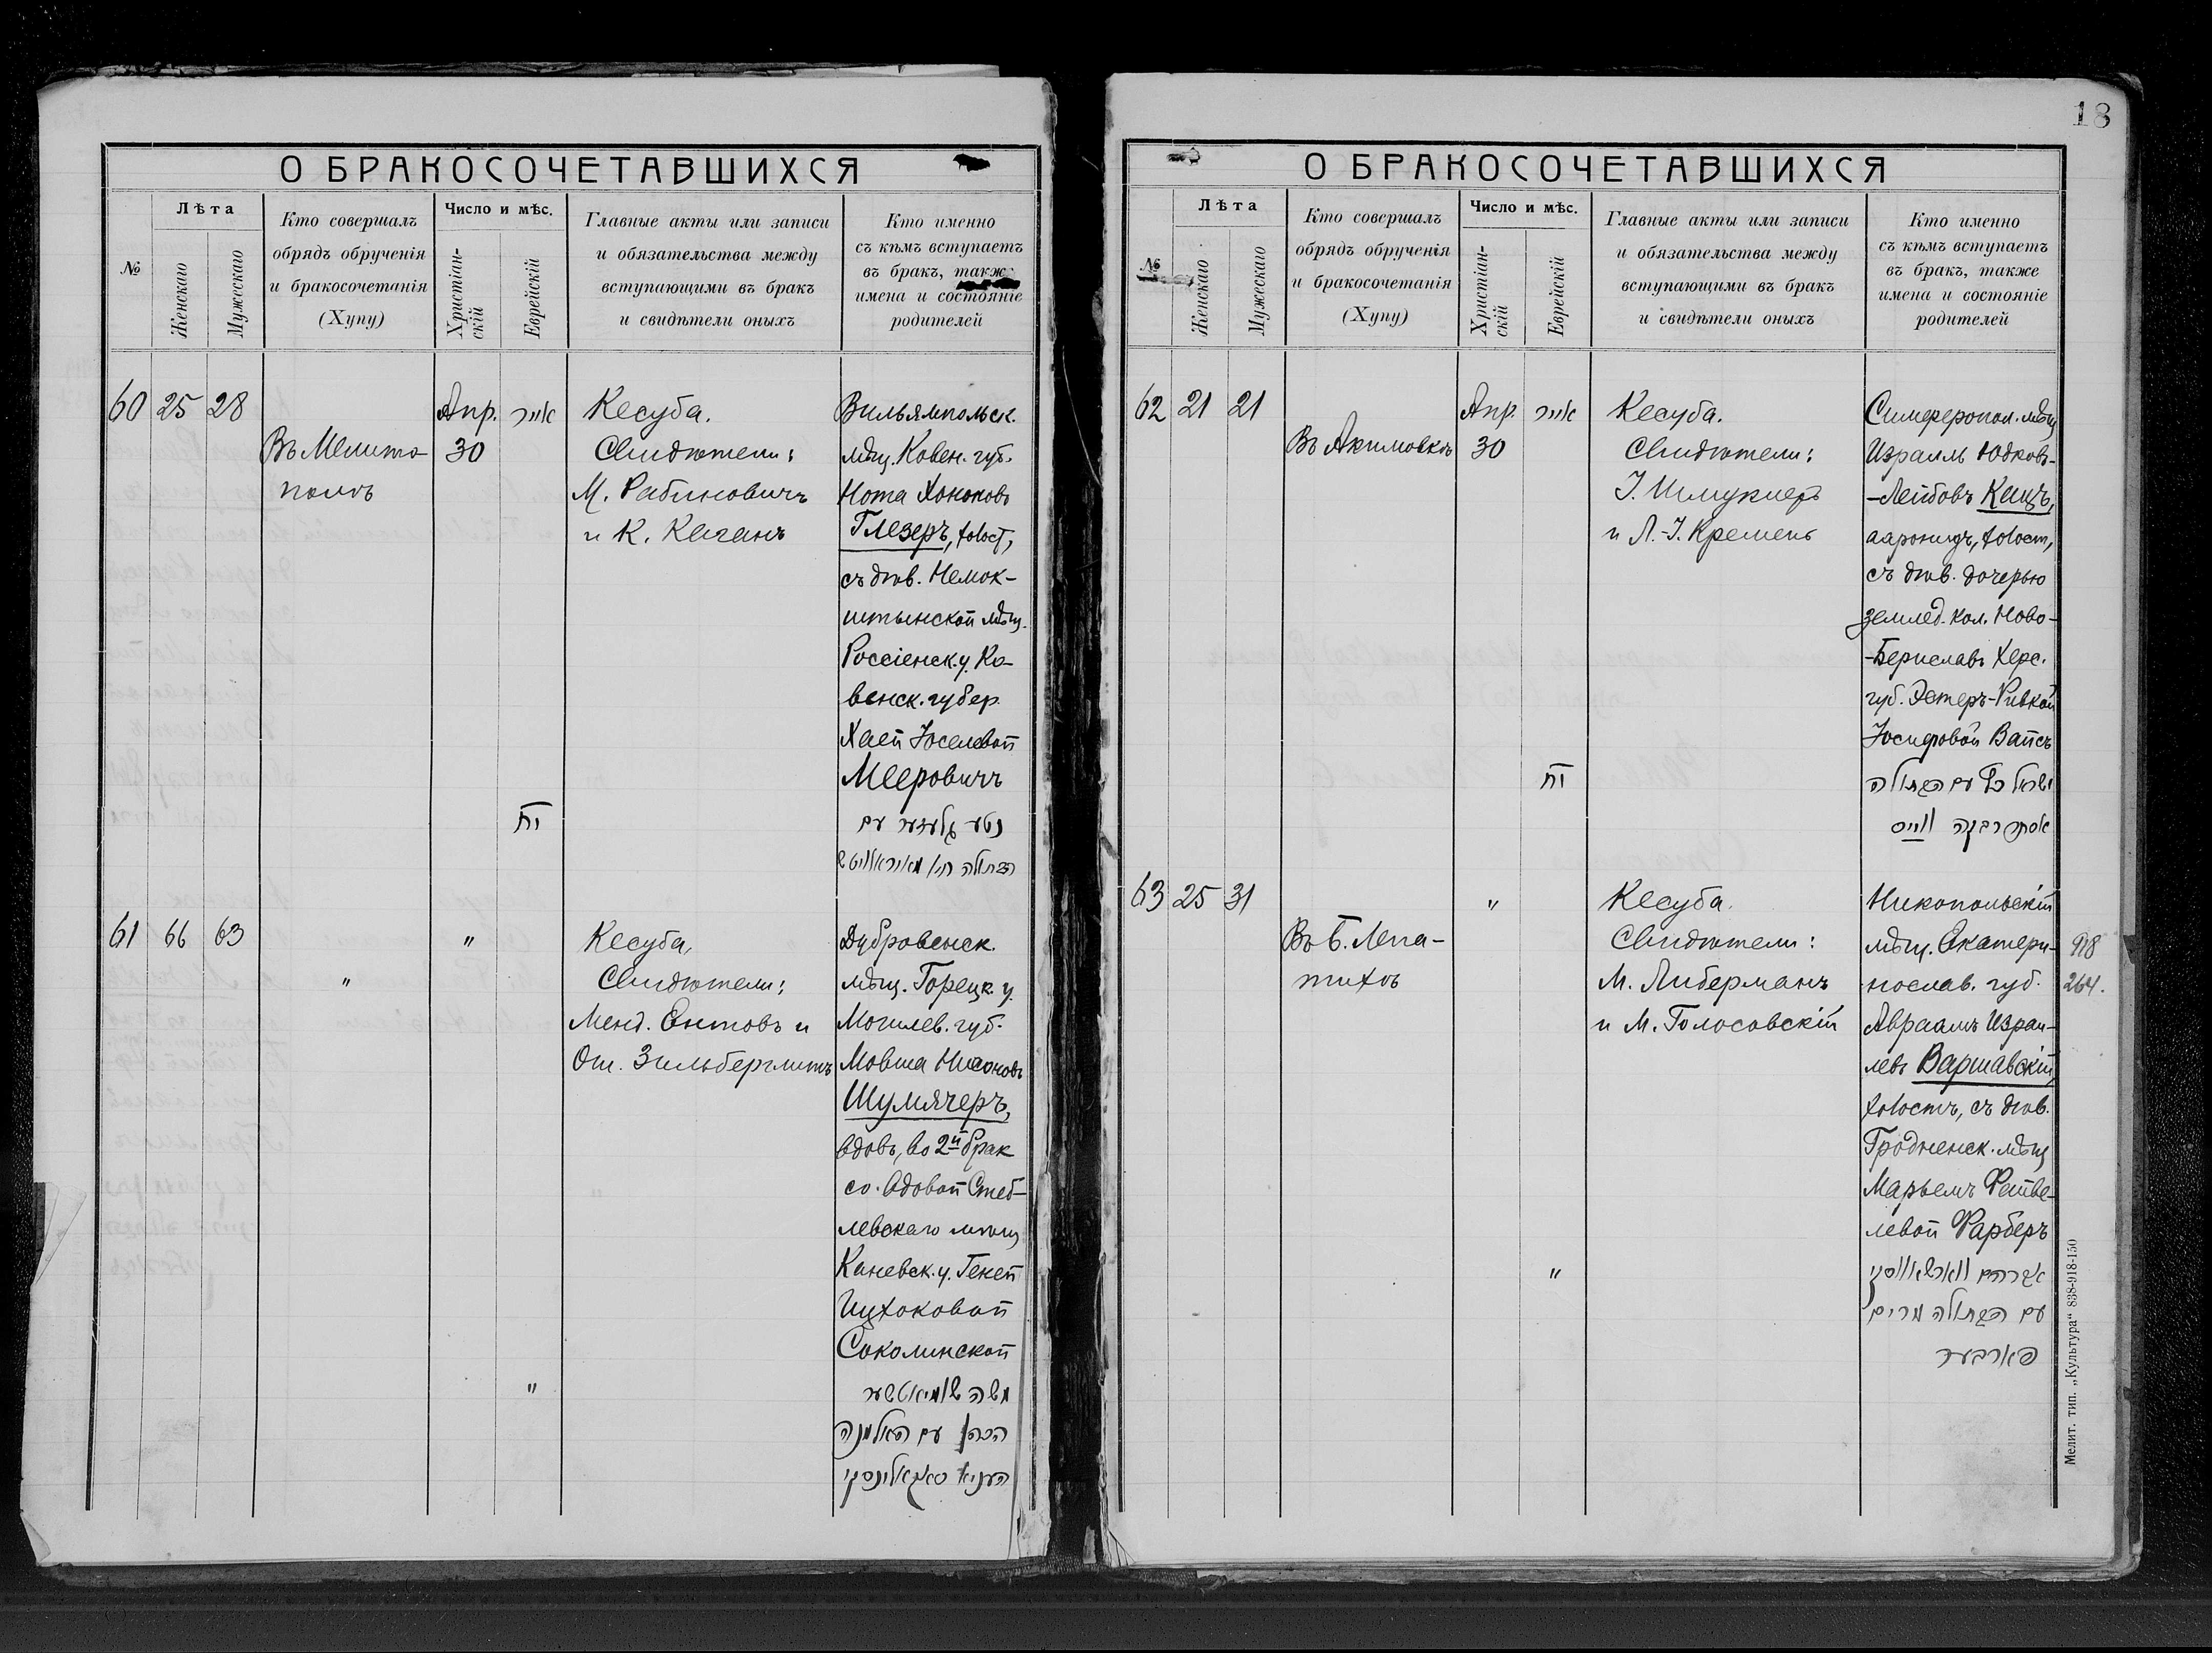 О БРАКОСОЧЕТАВШИХСЯ
№
Лѣта
Женскаго
Мужескаго
Кто совершалъ
обрядъ обрученія
и бракосочетанія
(Хупу)
Число и мѣс.
Христіан-
скій
Еврейскій
Главные акты или записи
и обязательства между
вступающими въ бракъ
и свидѣтели оныхъ
Кто именно
съ кѣмъ вступаетъ
въ бракъ, также
имена и состояніе
родителей
60 25 28
Въ Мелито-
полѣ
Апр.
30
אייר
יח
Кесуба.
Свидѣтели:
М. Рабиновичъ
и К. Каганъ
Вильямпольск.
мѣщ. Ковен. губ.
Нота Хононовъ
Глезеръ, холост,
съ дѣв. Немок-
штынской мѣщ.
Россіенск. у. Ко-
венск. губер.
Хаей Іоселевой
Мееровичъ
נטע גלעזער עם
61 66 63
"
"
"
Кесуба.
Свидѣтели:
Менд. Ентовъ и
Ош. Зильберглитъ
Дубровенск.
мѣщ. Горецк. у.
Могилев. губ.
Мовша Нисоновъ
Шумячеръ,
вдовъ, во 2й брак
со вдовой Стеб-
левскаго мѣщ
Каневск. у. Геней
Ицхоковой
Соколинской
משה שומיאטשער
הכהן עם האלמנה
18
О БРАКОСОЧЕТАВШИХСЯ
№
Лѣта
Женскаго
Мужескаго
Кто совершалъ
обрядъ обрученія
и бракосочетанія
(Хупу)
Число и мѣс.
Христіан-
скій
Еврейскій
Главные акты или записи
и обязательства между
вступающими въ бракъ
и свидѣтели оныхъ
Кто именно
съ кѣмъ вступаетъ
въ бракъ, также
имена и состояніе
родителей
62 21 21
Въ Акимовкѣ
Апр.
30
אייר
יח
Кесуба.
Свидѣтели:
І. Шмуклеръ
и Л.-І. Кремень
Симферопол. мѣщ
Израиль Юдковъ-
-Лейбовъ Кацъ,
ааронидъ, холост,
съ дѣв. дочерью
землед. кол. Ново-
-Бериславъ Херс.
губ. Эстеръ-Ривкой
Іосифовой Вайсъ
ישראל כץ עם הבתולה
אסתר רבקה ווייס
63 25 31
Въ Б. Лепа-
тихѣ
"
"
Кесуба.
Свидѣтели:
М. Либерманъ
и М. Голосовскій
Никопольскій
мѣщ. Екатери-
нослав. губ.
Авраамъ Изра-
левъ Варшавскій,
холостъ, съ дѣв.
Гродненск. мѣщ
Марьемъ Файве-
левой Фарберъ
אברהם ווארשאווסקי
עם הבתולה מרים
פארבער
918
264.
Мелит. тип. „Культура“ 838-918-150